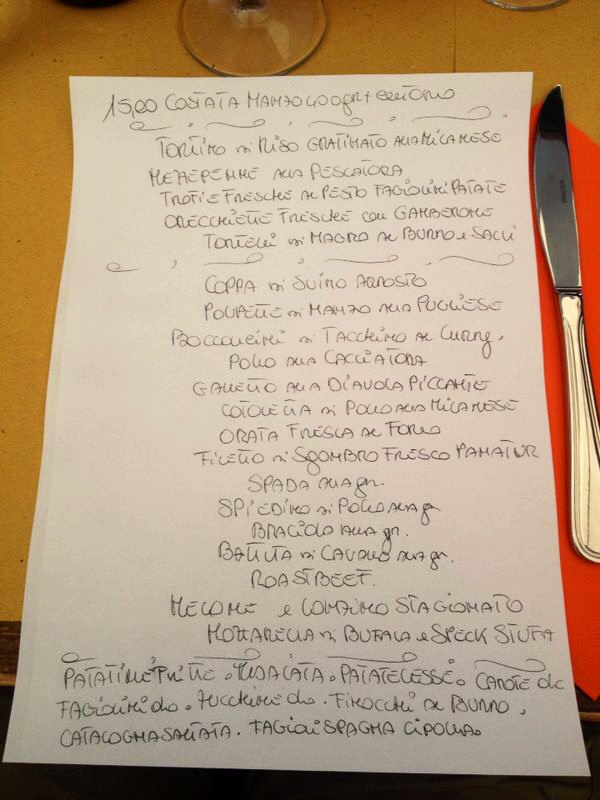 15,00 COSTATA MANZO 400gr + CONTORNO
TORTINO di RISO GRATINATO ALLA MILANESE
MEZZEPENNE ALLA PESCATORA
TROFIE FRESCHE AL PESTO FAGIOLINI PATATE
ORECCHIETTE FRESCHE con GAMBERONE
TORTELLI di MAGRO AL BURRO e SALVI
COPPA di SUINO ARROSTO
POLPETTE di MANZO ALLA PUGLIESE
BOCCONCINI di TACCHINO AL CURRY.
POLLO ALLA CACCIATORA
GALLETTO ALLA DIAVOLA PICCANTE
COTOLETTA di POLLO ALLA MILANESE
ORATA FRESCA AL FORNO
FILETTO di SGOMBRO FRESCO PANATUR
SPADA alla gr.
SPIEDINO di POLLO alla gr
BRACIOLA alla gr.
BATTUTA di CAVALLO alla gr.
ROASTBEEF.
MELONE e LONZINO STAGIONATO
MOZZARELLA di BUFALA e SPECK STUFA
PATATINE FRITTE . INSALATA . PATATE LESSE . CAROTE olc
FAGIOLINI olio . ZUCCHINE olio . FINOCCHI AL BURRO .
CATALOGNA SALTATA . FAGIOLI SPAGNA CIPOLLA.